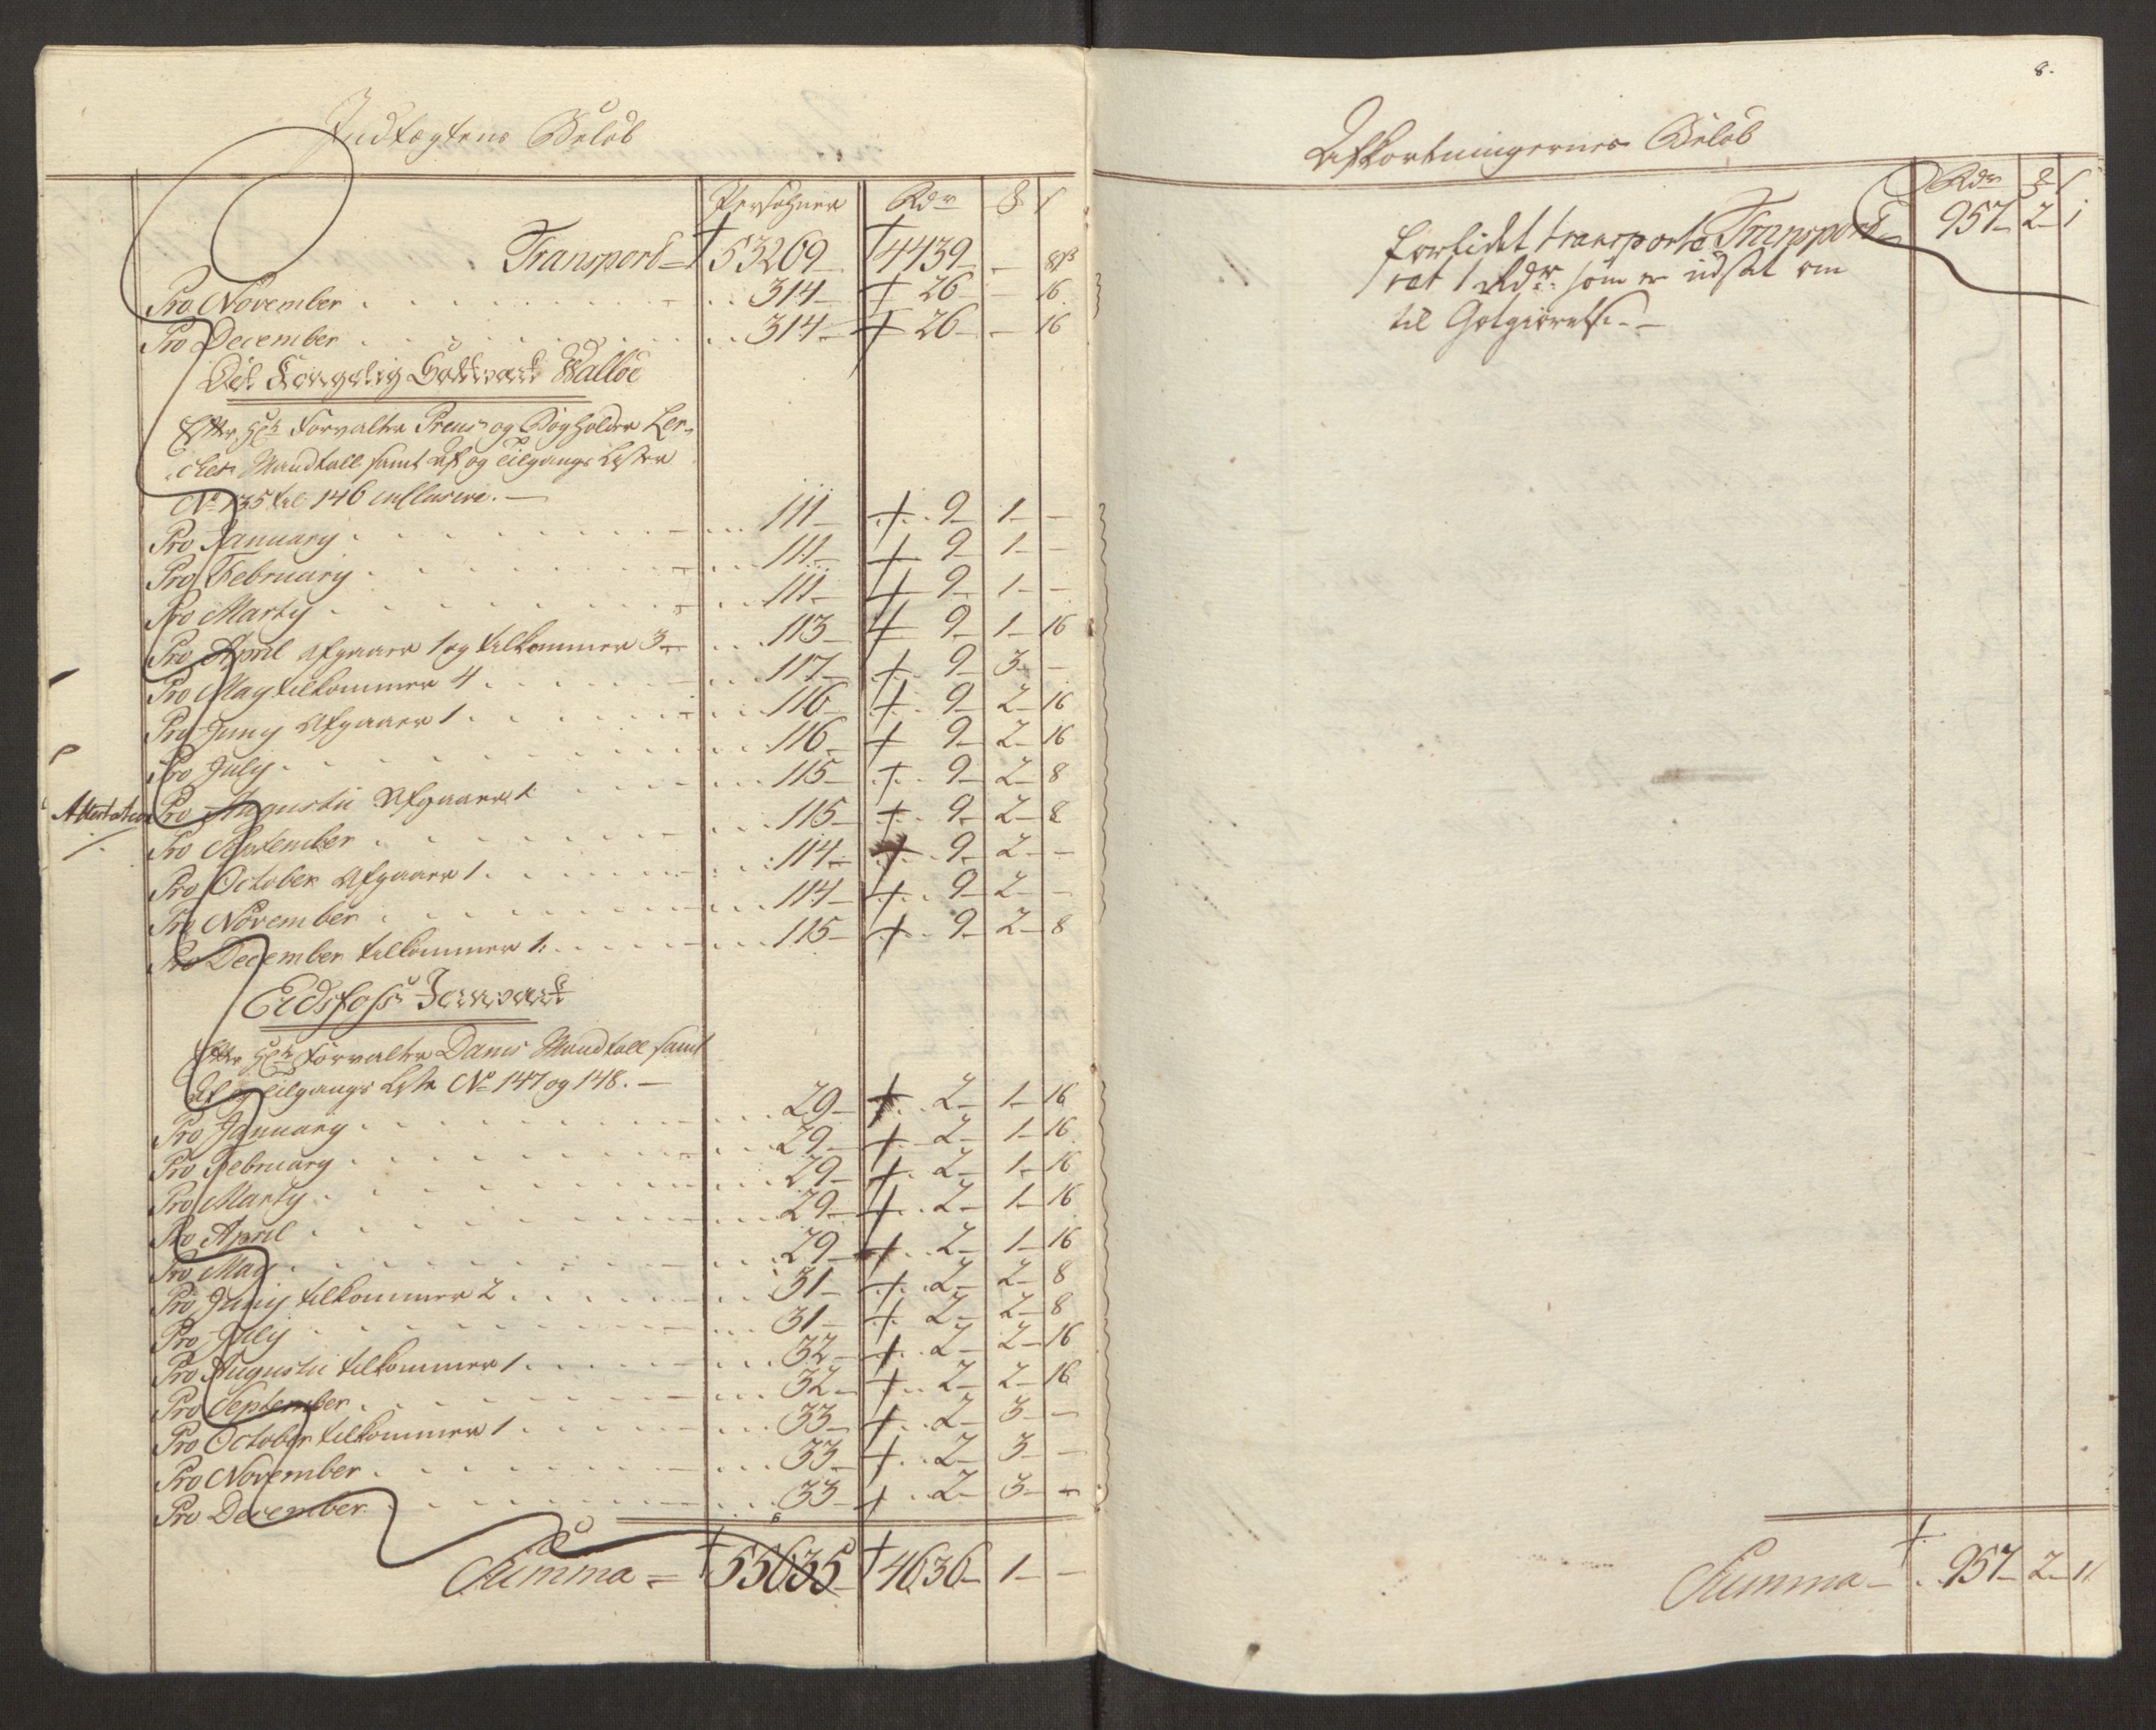 Indtægtens Beløb
Persohner Rdr ß
Transport = 53269 4439 8
Pro November 314 26 16
Pro December 314 26 16
Det Kongelig Saltværk Walløe
Efter Hr Forvalter Preus og Bogholder Ler-
chen Mandtall samt Af og Tilgangs Lister
No 135 til 146 inclusive.
Pro January 111 9 1
Pro February 111 9 1
Pro Marty 111 9 1
Pro April Afgaaer 1 og tilkommer 3 113 9 1 16
Pro May tilkommer 4 117 9 3
Pro Juny Afgaaer 1 116 9 2 16
Pro July 116 9 2 16
Pro Augusti Afgaaer 1 115 9 2 8
Attestation
Pro September 115 9 2 8
Pro October Afgaaer 1 114 9 2
Pro November 114 9 2
Pro December tilkommer 1 115 9 2 8
Eidsfoss Jernværk
Efter Hr Forvalter Danis Mandtall samt
Af og Tilgangs Liste No 147 og 148.
Pro January 29 2 1 16
Pro February 29 2 1 16
Pro Marty 29 2 1 16
Pro April 29 2 1 16
Pro May 29 2 1 16
Pro Juny tilkommer 2 31 2 2 8
Pro July 31 2 2 8
Pro Augusti tilkommer 1 32 2 2 16
Pro September 32 2 2 16
Pro October tilkommer 1 33 2 3
Pro November 33 2 3
Pro December 33 2 3
Summa = 55635 4636 1
8.
Afkortningernes Beløb
Rdr
Transport 957 2 1
forlidet transporte
ret 1 Rdr: som er udsat om
til Gotgiørelse.
Summa 957 2 1